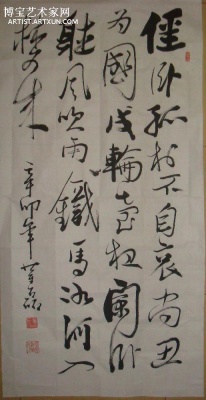 博宝艺术家网
ARTIST.ARTXUN.COM
僵卧孤村不自哀尚思
为國戍輪台夜阑卧
聽风吹雨鐵馬冰河入
梦来
辛卯年